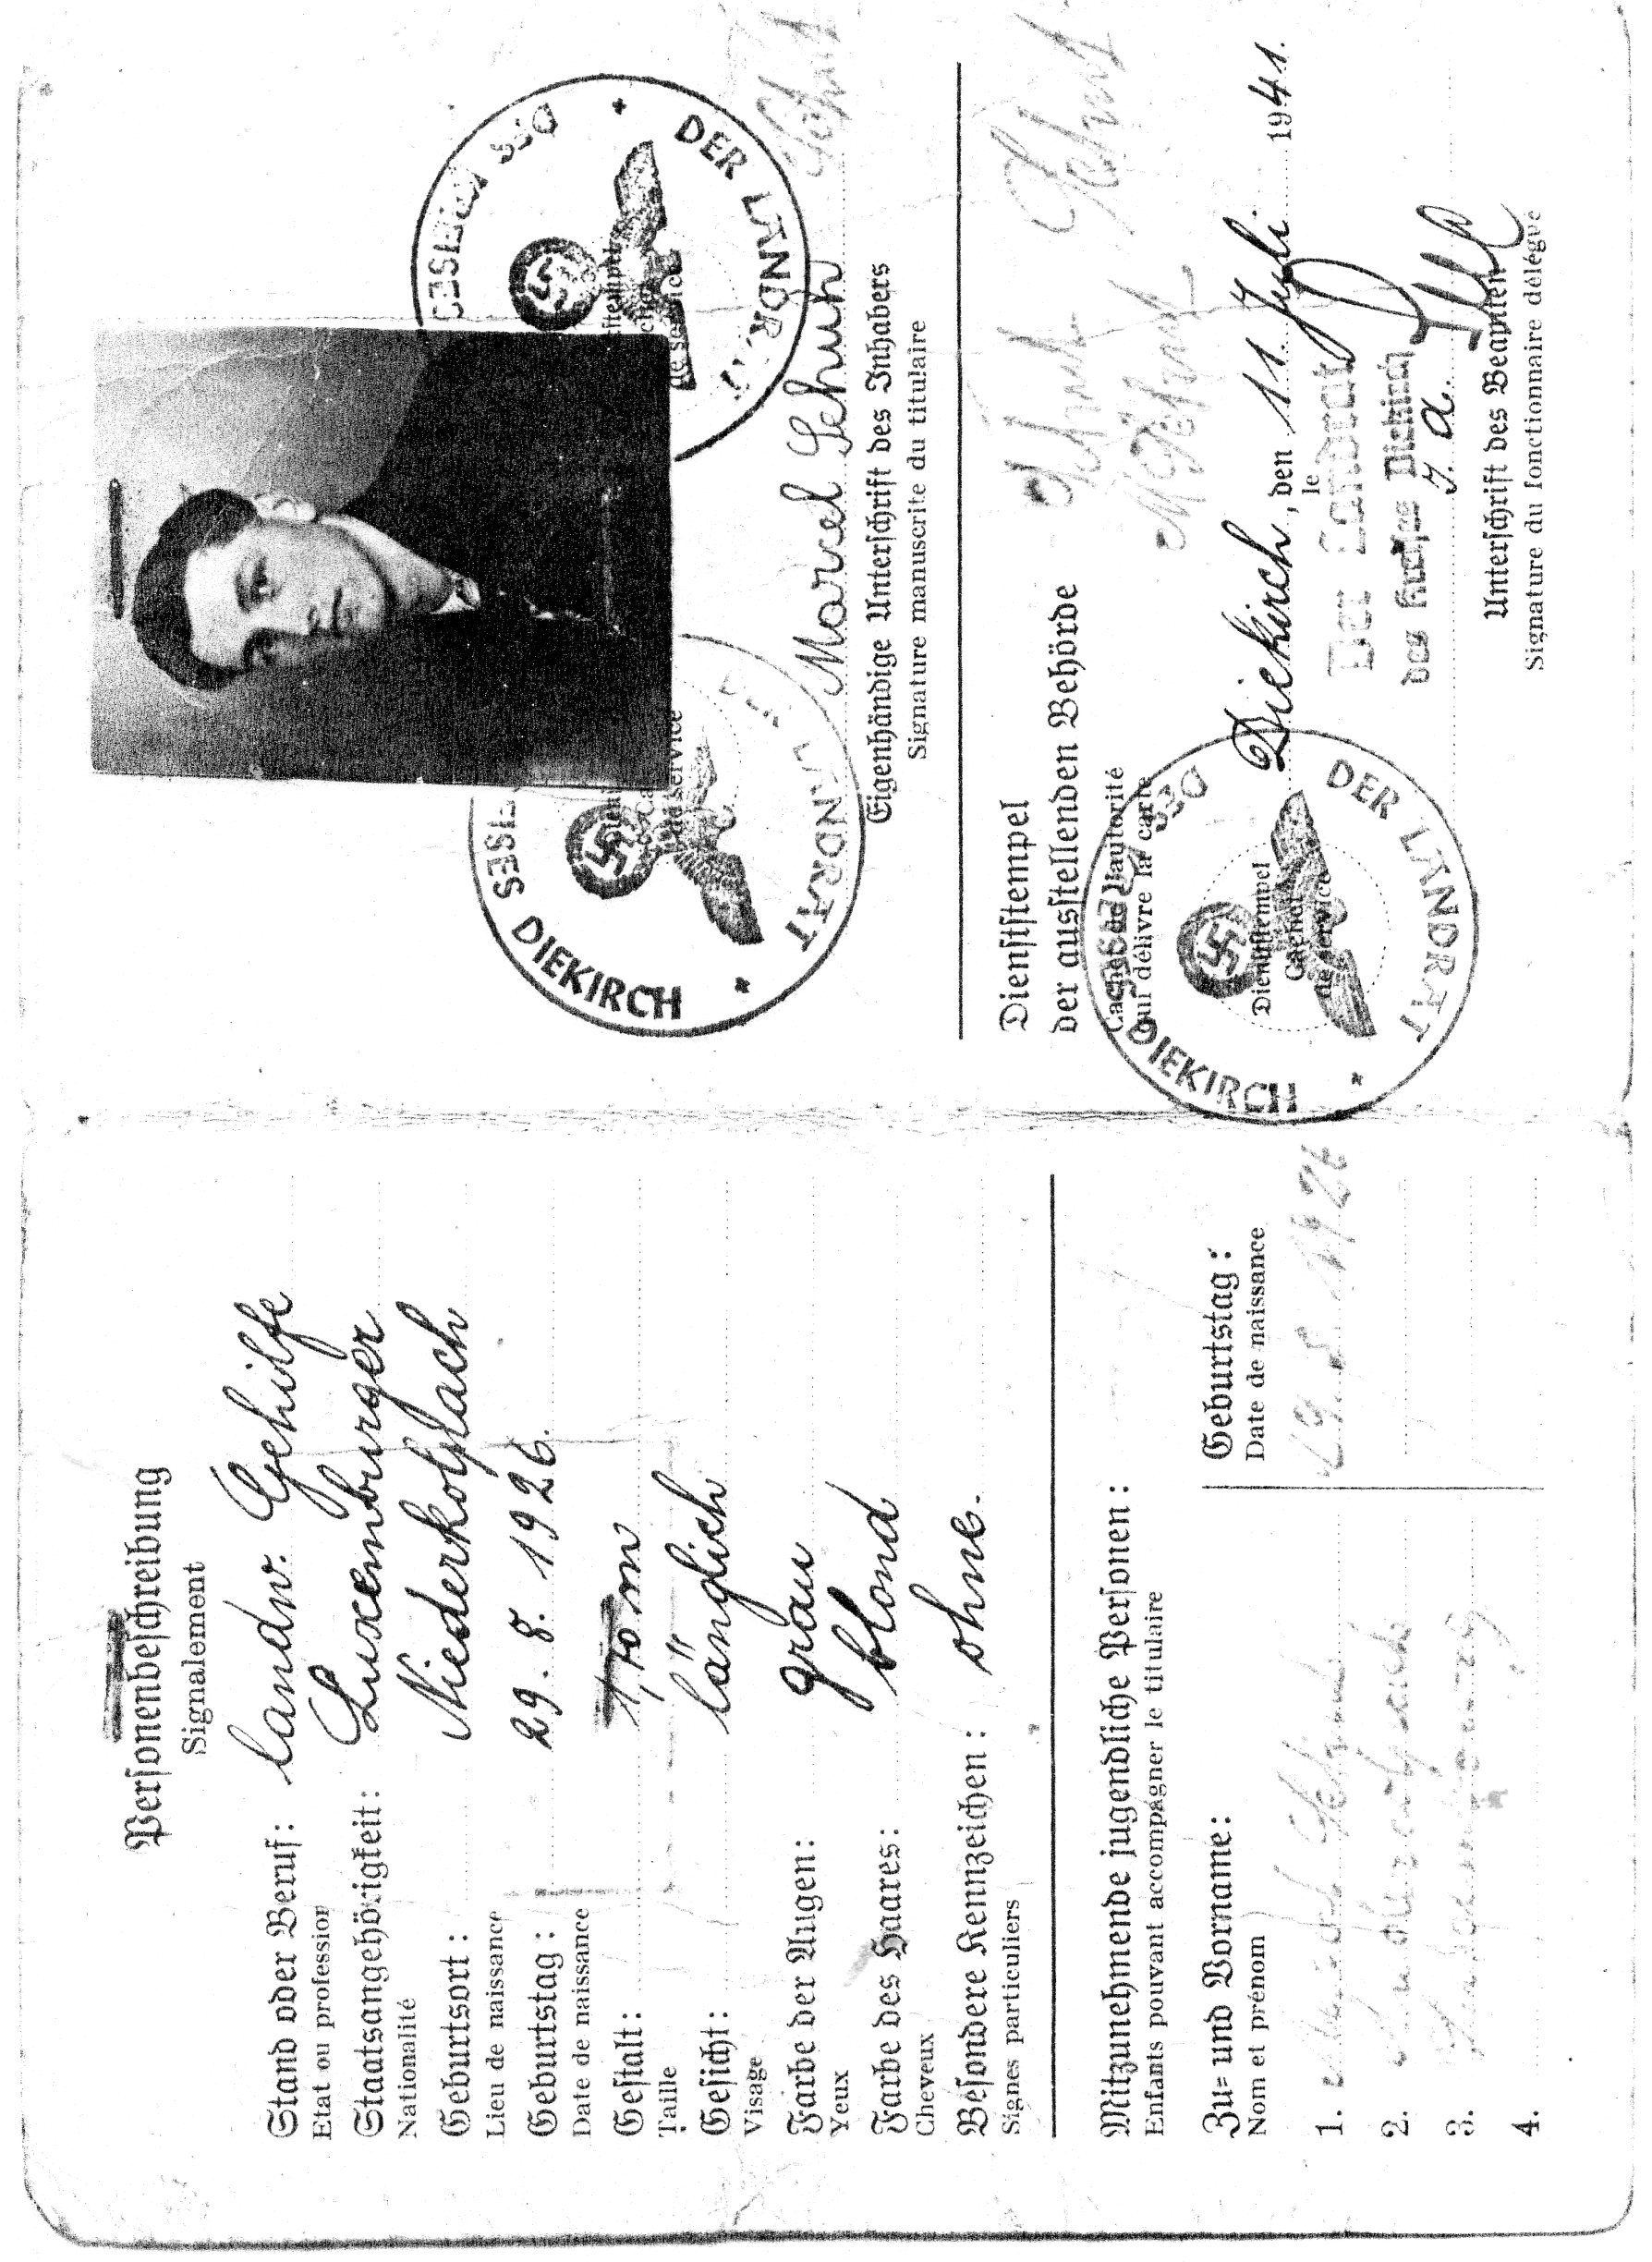 Personenbeschreibung
Signalement
Stand oder Beruf: landw. Gehilfe
Etat ou profession
Staatsangehörigkeit: Luxemburger
Nationalité
Geburtsort: Niederkolpach
Lieu de naissance
Geburtstag: 29. 8. 1926.
Date de naissance
Gestalt: 1,70 m
Taille
Gesicht: länglich
Visage
Farbe der Augen: grau
Yeux
Farbe des Haares: blond
Cheveux
Besondere Kennzeichen: ohne.
Signes particuliers
Mitzunehmende jugendliche Personen:
Enfants pouvant accompagner le titulaire
Zu- und Vorname: Geburtstag:
Nom et prénom Date de naissance
1. Schuh 29. 8 1926
2.
3.
4.
DER LANDRAT DES KREISES DIEKIRCH
DER LANDRAT DES KREISES
Marcel Schuh
Eigenhändige Unterschrift des Inhabers
Signature manuscrite du titulaire
Dienststempel
der ausstellenden Behörde
Cachet de l'autorité
qui délivre la carte
DER LANDRAT DES KREISES DIEKIRCH
Dienststempel
Cachet
de service
Diekirch, den 11. Juli 1941.
le
Der Landrat
des Kreises Diekirch
J. A.
Unterschrift des Beamten
Signature du fonctionnaire délégué